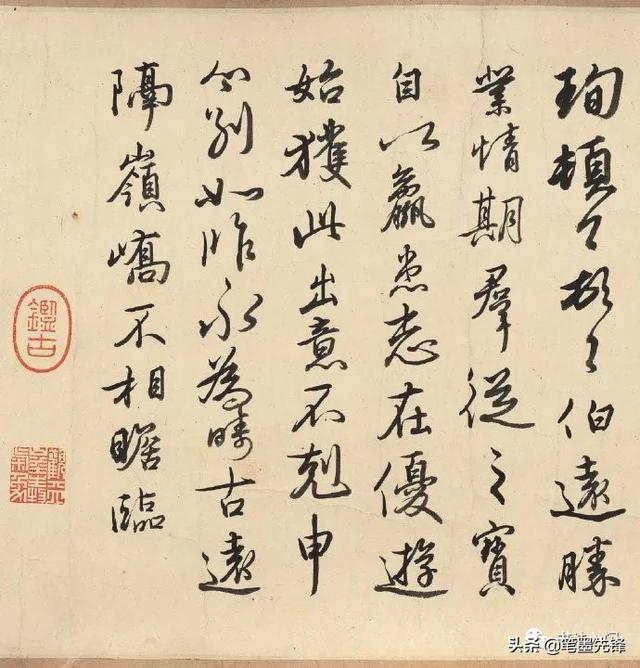 珣頓首頓首伯遠勝
業情期羣從之寶
自以羸患志在優遊
始獲此出意不剋申
分別如昨永為疇古遠
隔嶺嶠不相瞻臨
鑑古
头条@笔墨先锋